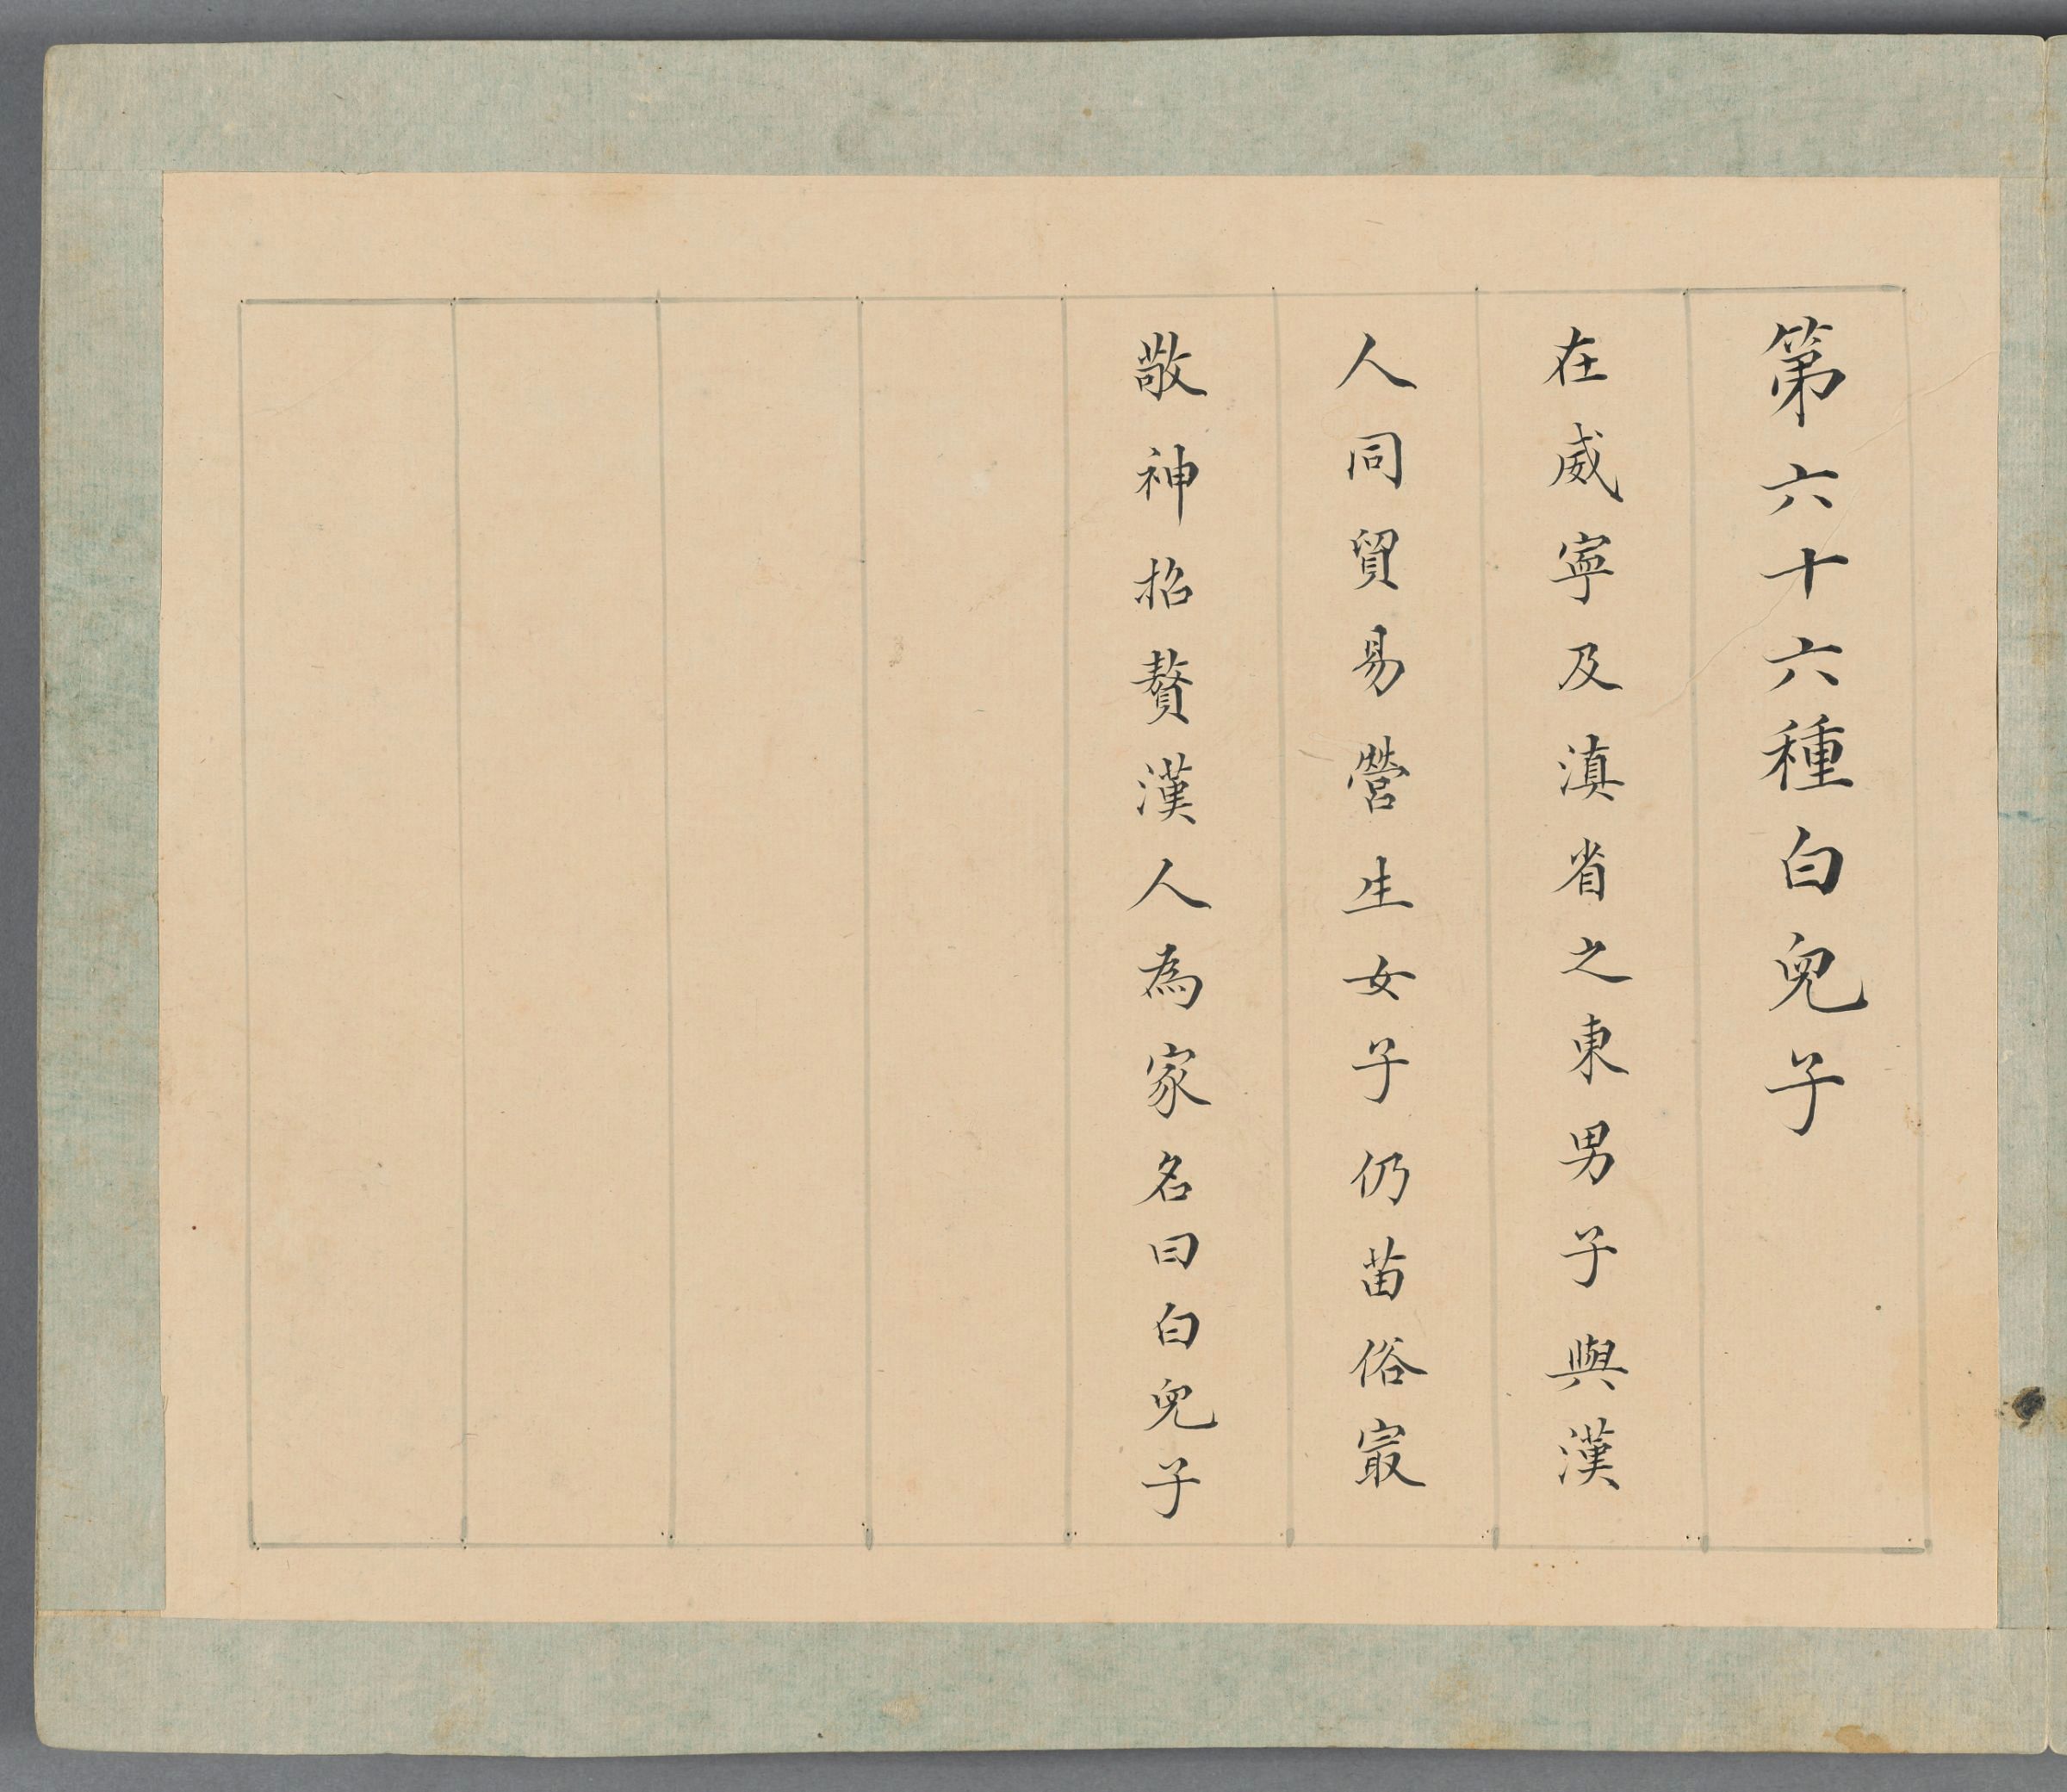 第六十六種白兒子
在威寧及滇省之東男子與漢
人同貿易營生女子仍苗俗冣
敬神招贅漢人為家名曰白兒子